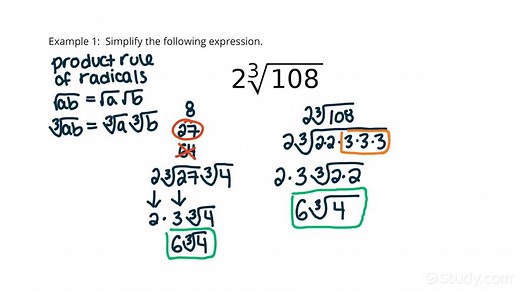 Example 1: Simplify the following expression.
product rule
of radicals
√ab = √a√b
∛ab = ∛a∛b
2∛108
8
27
64
2∛27∛4
2·3∛4
6∛4
2∛108
2∛2·2·3·3·3
2·3∛2·2
6∛4
Study.com